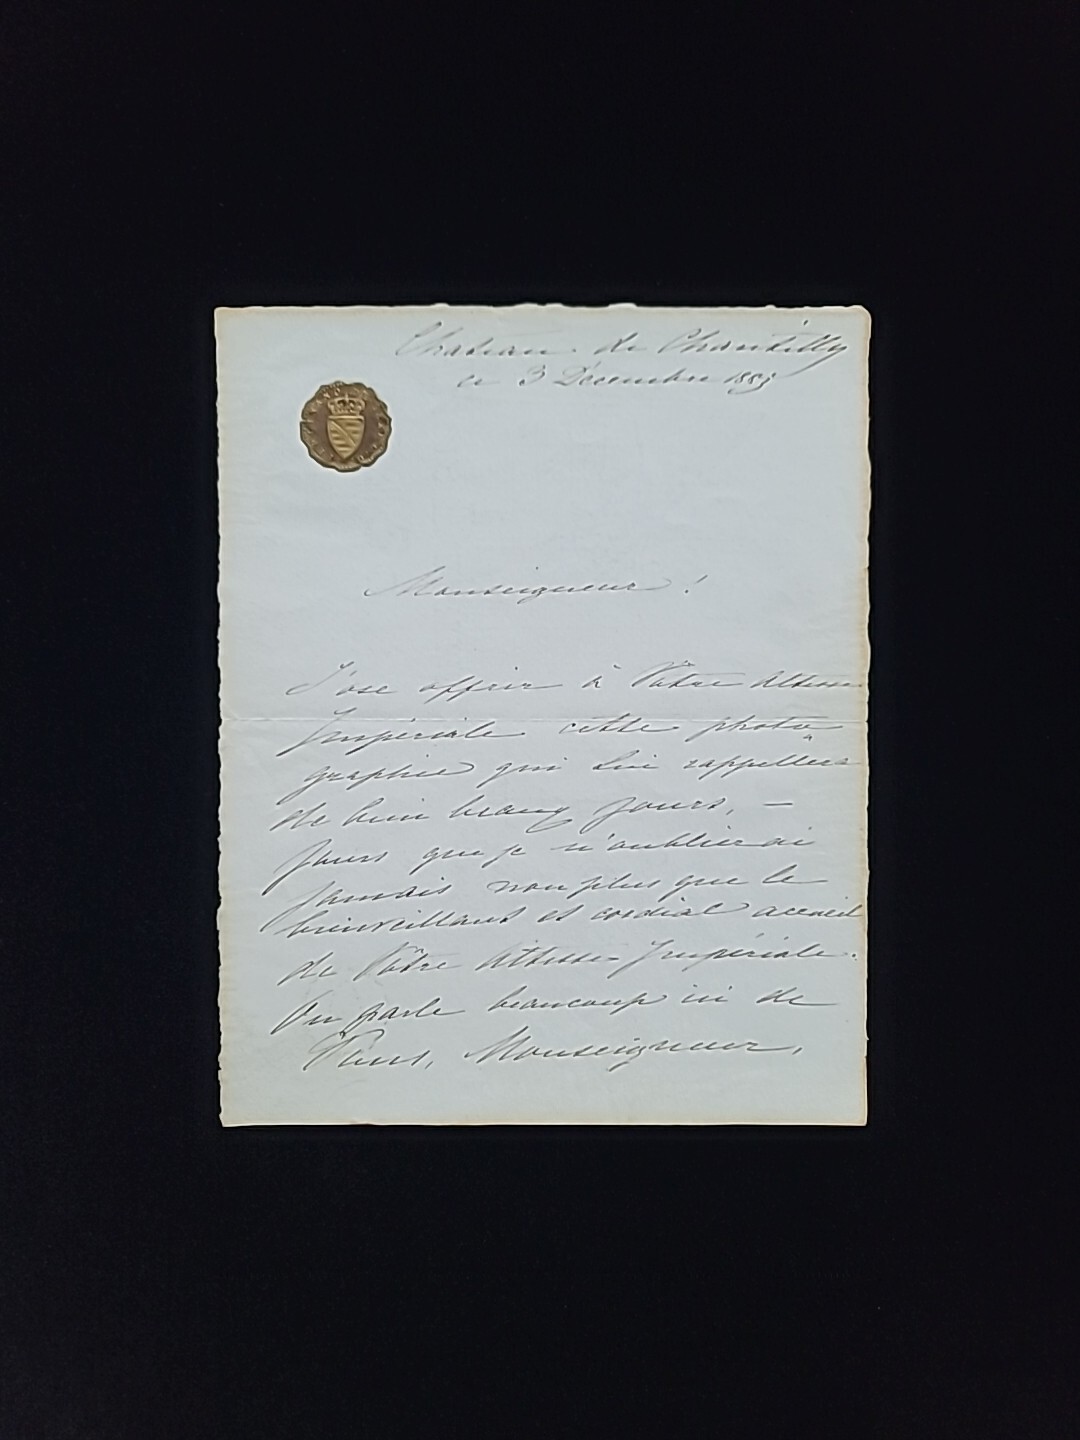 Chateau de Chantilly
ce 3 Décembre 1883
Monseigneur !
J'ose offrir à Vôtre Altesse
Impériale cette photo
graphie qui Lui rappellera
de bien beaux jours, —
jours que je n'oublierai
jamais non plus que le
bienveillant et cordial acceuil
de Vôtre Altesse Impériale.
On parle beaucoup ici de
Vous, Monseigneur,